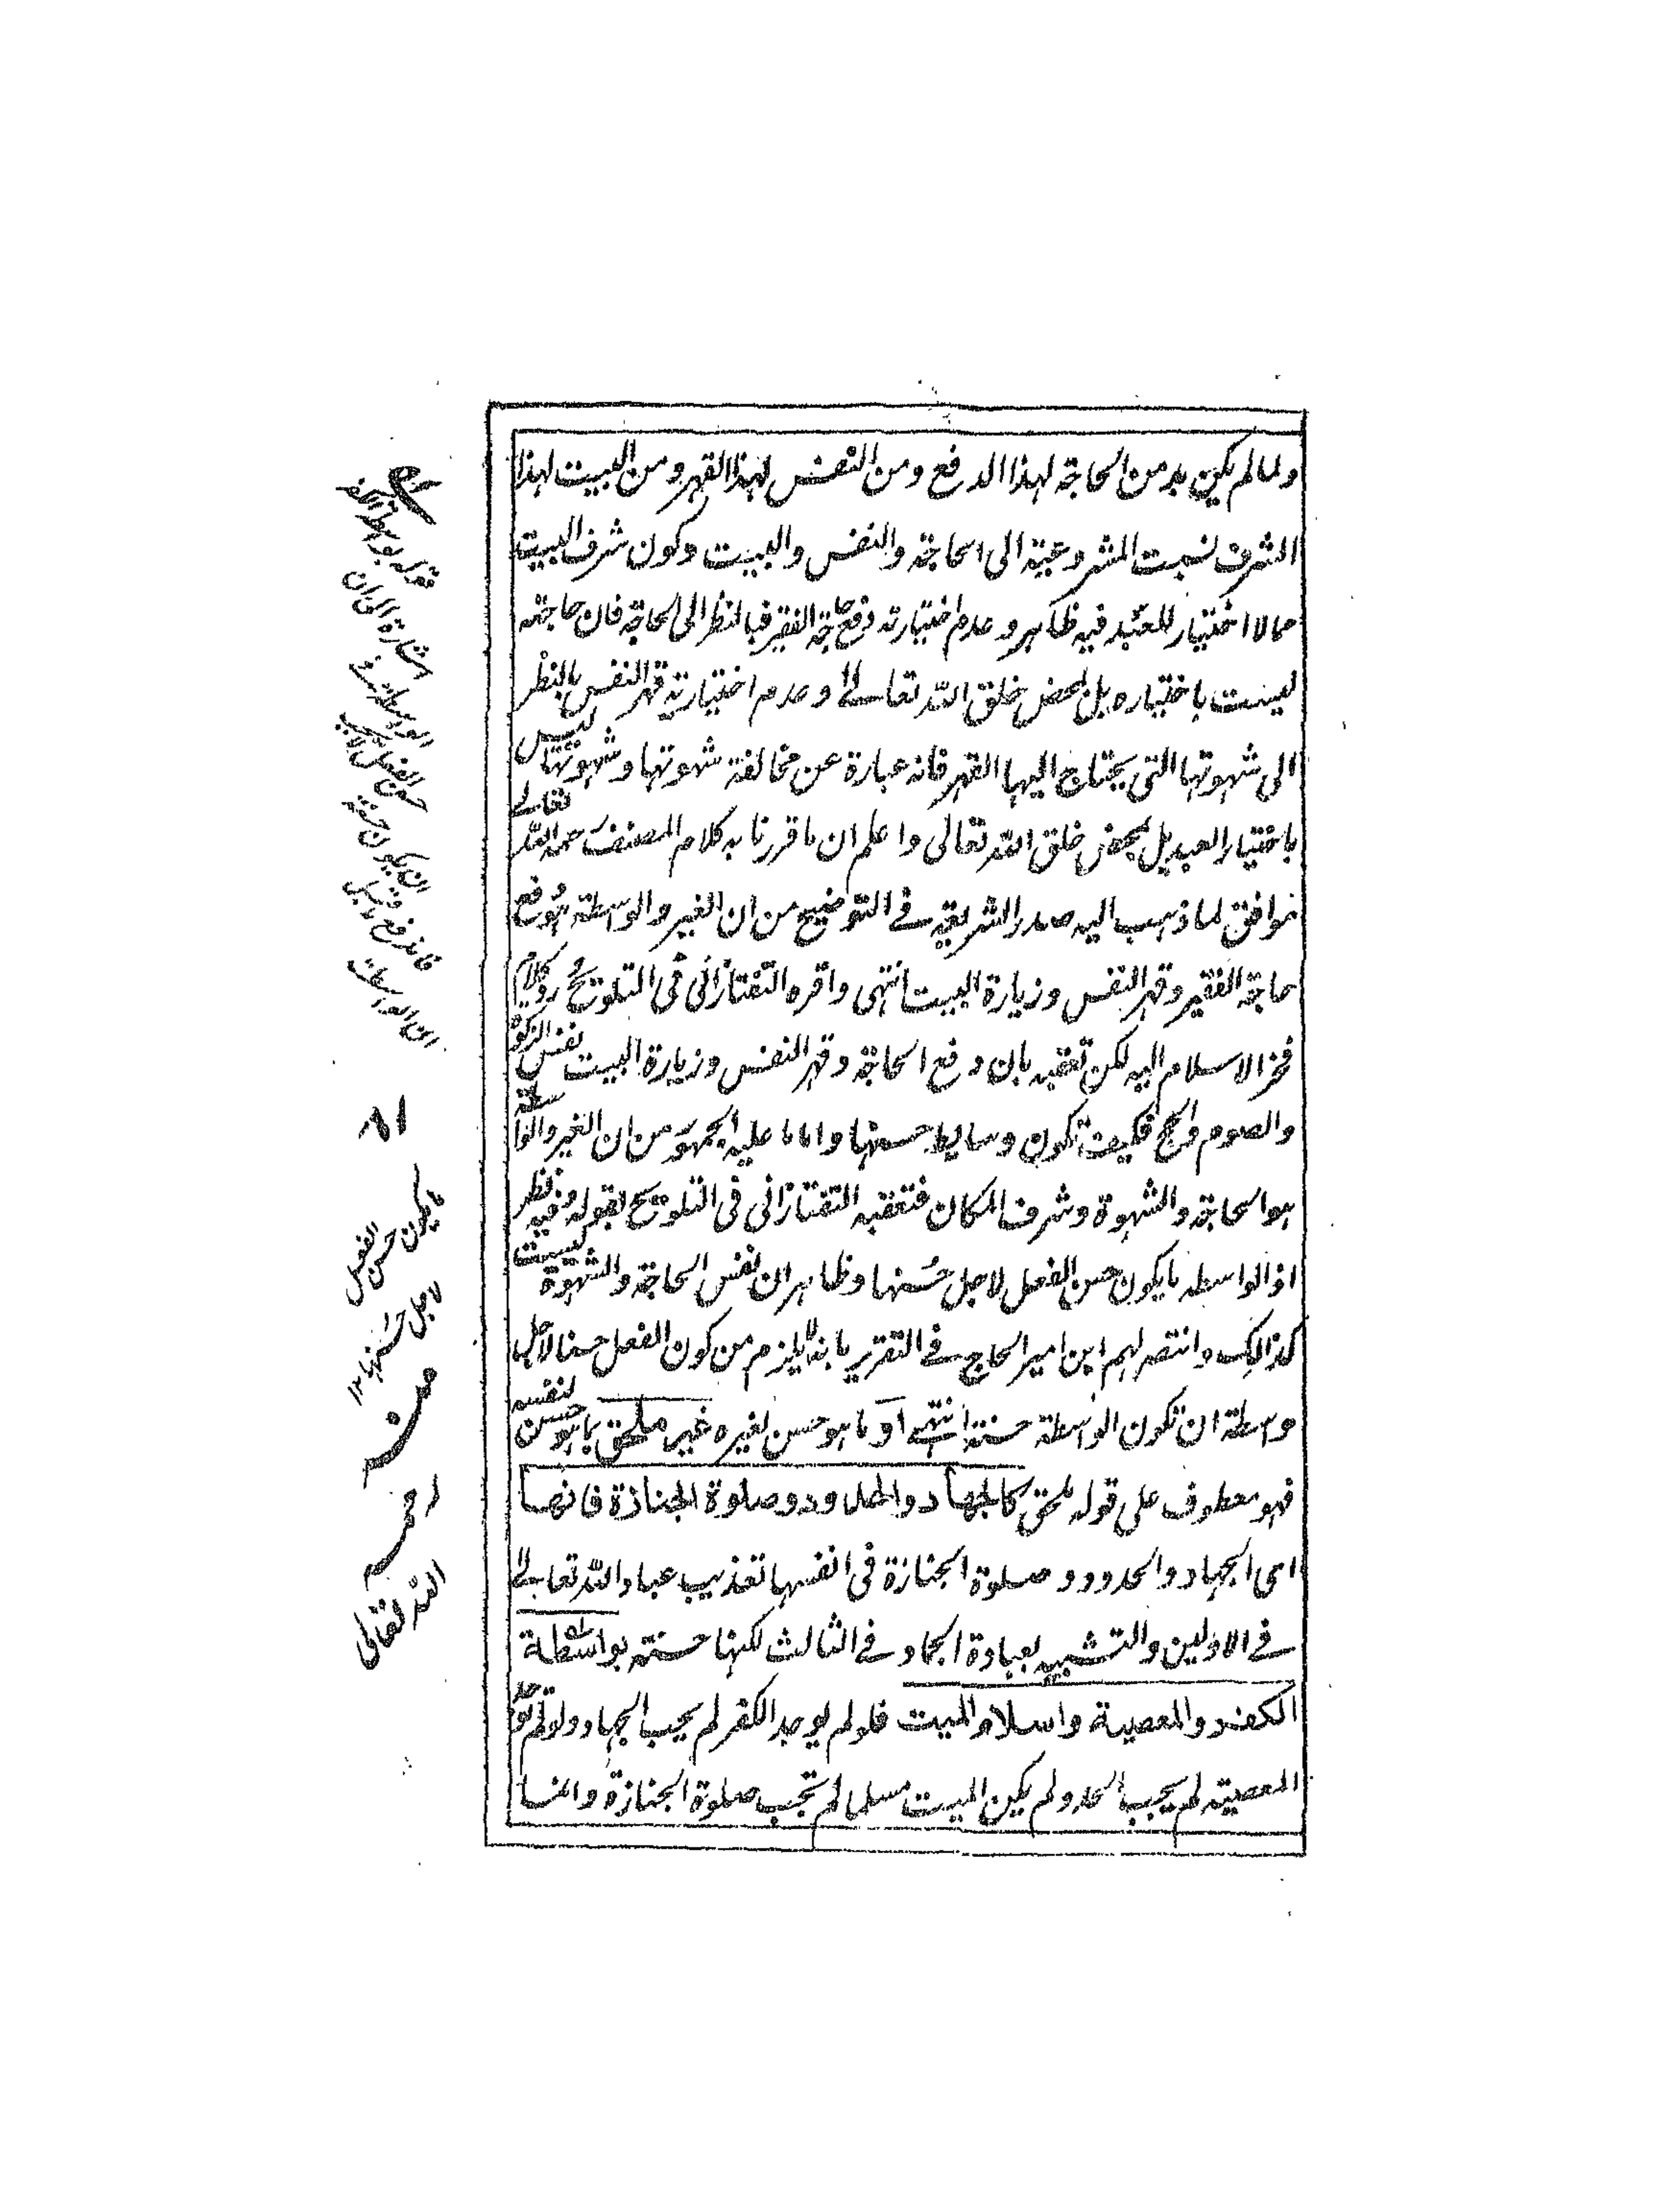 ولما لم يكن بد من الحاجة لهذا الدفع ومن النفس لهذا القهر ومن البيت لهذا
الشرف نسبت المشروعية الى الحاجة والنفس والبيت وكون شرف البيت
مما لا اختيار للعبد فيه ظاهر وعدم اختيارية دفع حاجة الفقير فبالنظر الى الحاجة فان حاجته
ليست باختياره بل بمحض خلق الله تعالى وعدم اختيارية قهر النفس بالنظر
الى شهوتها التى يحتاج اليها القهر فانه عبارة عن مخالفة شهوتها وشهوتها ليس
باختيار العبد بل بمحض خلق الله تعالى واعلم ان ما قررنا به كلام المصنف رحمه الله تعالى
موافق لما ذهب اليه صدر الشريعة فى التوضيح من ان الغير والواسطة هو دفع
حاجة الفقير وقهر النفس وزيارة البيت انتهى واقره التفتازانى فى التلويح ورد كلام
فخر الاسلام اليه لكن تعقبه بان دفع الحاجة وقهر النفس وزيارة البيت نفس الزكوة
والصوم والحج فكيف تكون وسايط حسنها واما ما عليه الجمهور من ان الغير والواسطة
هو الحاجة والشهوة وشرف المكان فتعقبه التفتازانى فى التلويح بقوله وفيه نظر
اذ الواسطه ما يكون حسن الفعل لاجل حسنها وظاهر ان نفس الحاجة والشهوة ليست
كذالك وانتصر لهم ابن امير الحاج فى التقرير بانه لا يلزم من كون الفعل حسنا لاجل
واسطة ان تكون الواسطة حسنة انتهى او ما هو حسن لغيره غير ملحق بما هو حسن لنفسه
فهو معطوف على قوله ملحق كالجهاد والحدود وصلوة الجنازة فانها
اى الجهاد والحدود وصلوة الجنازة فى انفسها تعذيب عباد الله تعالى
فى الاولين والتشبيه بعبادة الجماد فى الثالث لكنها حسنته بواسطة
الكفر والمعصية واسلام الميت فلو لم يوجد الكفر لم يجب الجهاد ولو لم توجد
المعصية لم يجب الحد ولو لم يكن الميت مسلما لم تجب صلوة الجنازة وانما
ما يكون حسن الفعل
لاجل حسنها ١٢
منه
رحمه
الله تعالى